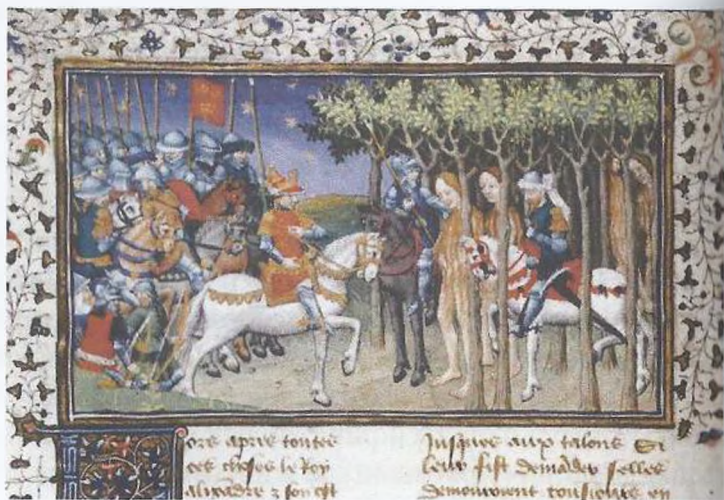 ors apres toutes
ces choses le Roy
alixandre z son ost
Jusques aux talons Et
leur fist demāder selles
demouroient tousiours en